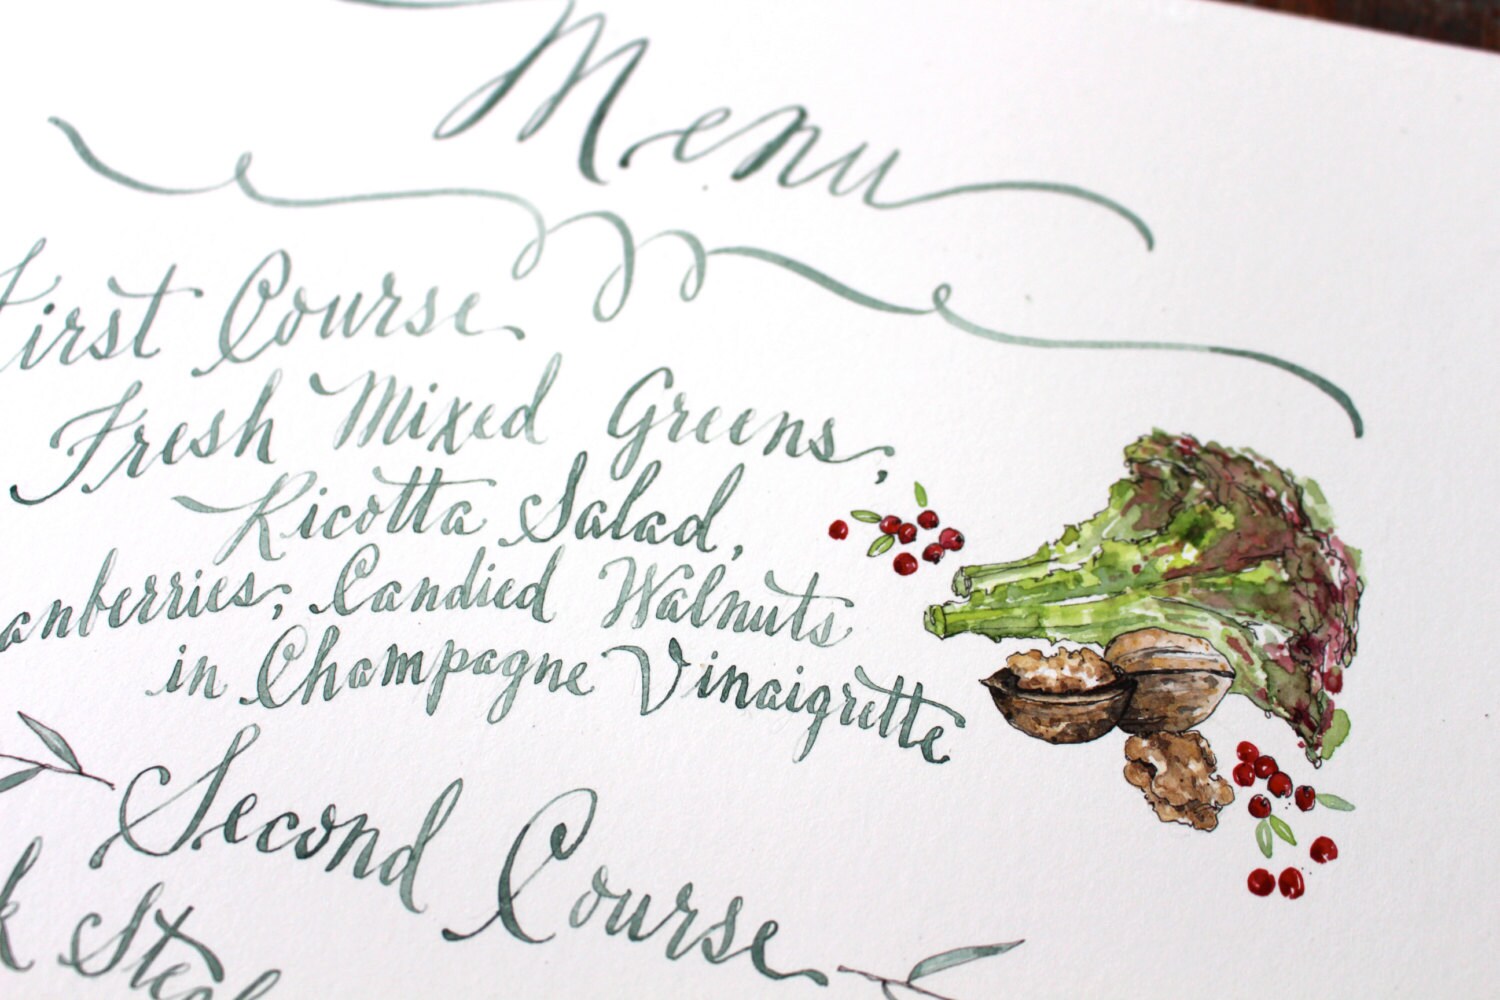 Menu
First Course
Fresh Mixed Greens,
Ricotta Salad,
anberries, Candied Walnuts
in Champagne Vinaigrette
Second Course